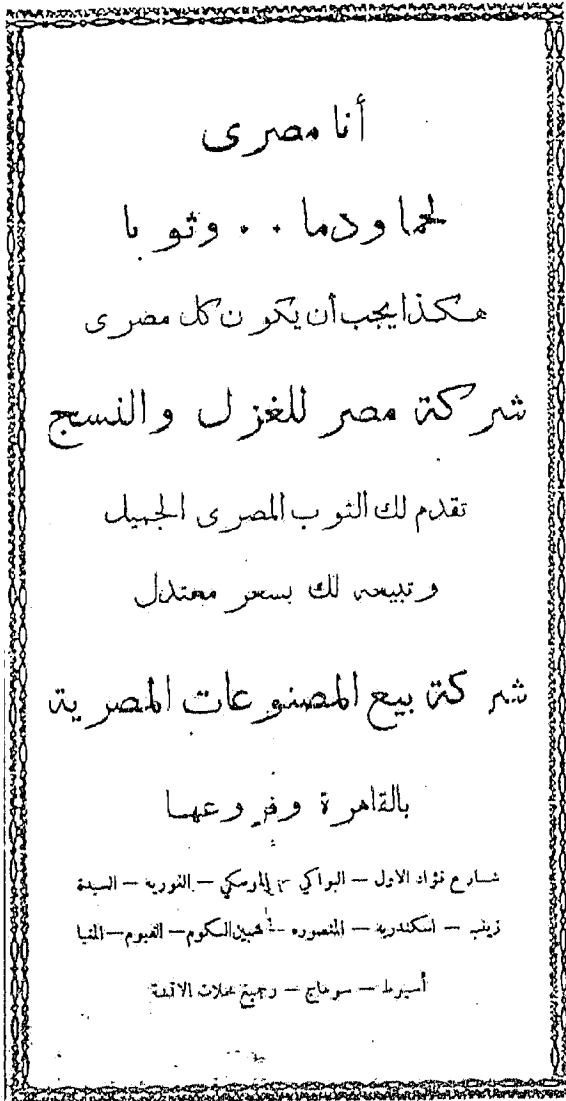 أنا مصرى
لحما ودما . . وثوبا
هكذا يجب أن يكون كل مصرى
شركة مصر للغزل والنسج
تقدم لك الثوب المصرى الجميل
وتبيعه لك بسعر معتدل
شركة بيع المصنوعات المصرية
بالقاهرة وفروعها
شارع فؤاد الاول — البواكي — الموسكي — الغورية — السيدة
زينب — اسكندرية — المنصوره — شبين الكوم — الفيوم — المنيا
أسيوط — سوهاج — وجميع محلات الاقمشة